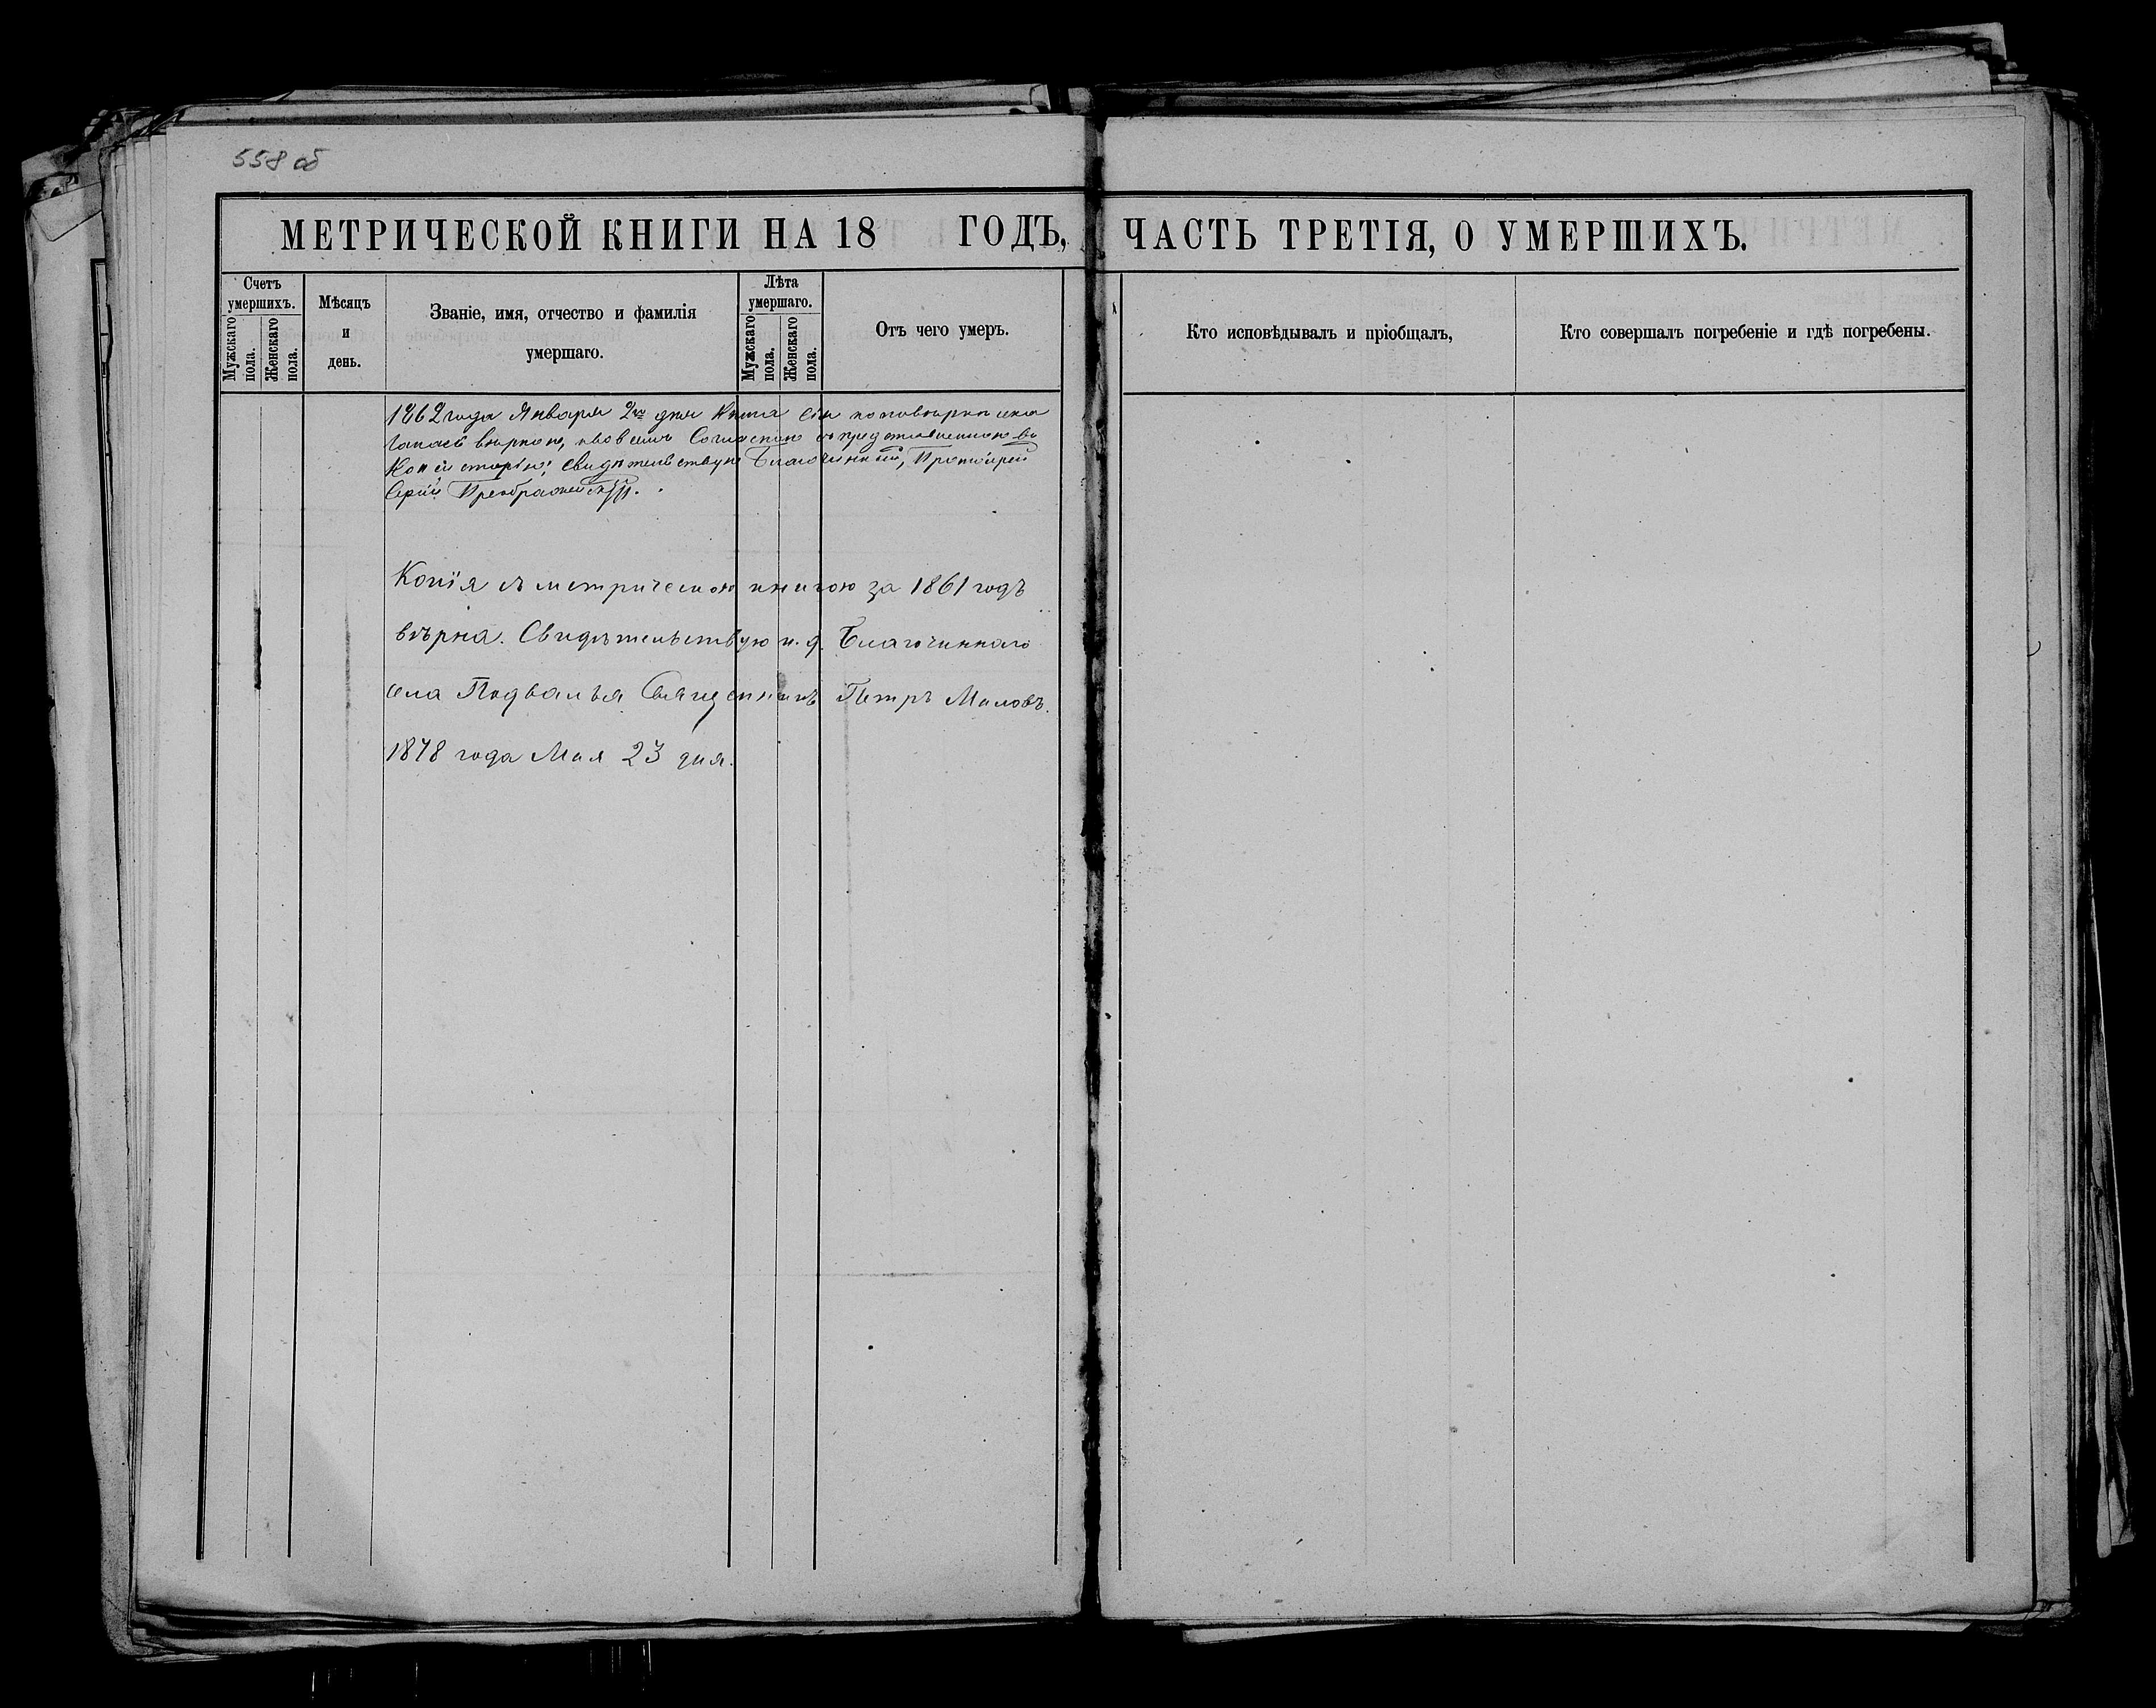 558 об
МЕТРИЧЕСКОЙ КНИГИ НА 18 ГОДЪ, ЧАСТЬ ТРЕТІЯ, О УМЕРШИХЪ.
Счетъ умершихъ.
Мужскаго пола.
Женскаго пола.
Мѣсяцъ и день.
Званіе, имя, отчество и фамилія умершаго.
Лѣта умершаго.
Мужскаго пола.
Женскаго пола.
Отъ чего умеръ.
Кто исповѣдывалъ и пріобщалъ,
Кто совершалъ погребеніе и гдѣ погребены.
1862 года Января 2го дня Книга сія по повѣркѣ ока
залась вѣрною, и во всемъ Согласною съ представленною въ
Консисторію; свидѣтельствую Благочинный, Протоіерей
Сергій Преображенскій.
Копія съ метрическою книгою за 1861 годъ
вѣрна. Свидѣтельствую и. д. Благочиннаго
села Подвалья Священникъ Петръ Миловъ.
1878 года Мая 23 дня.